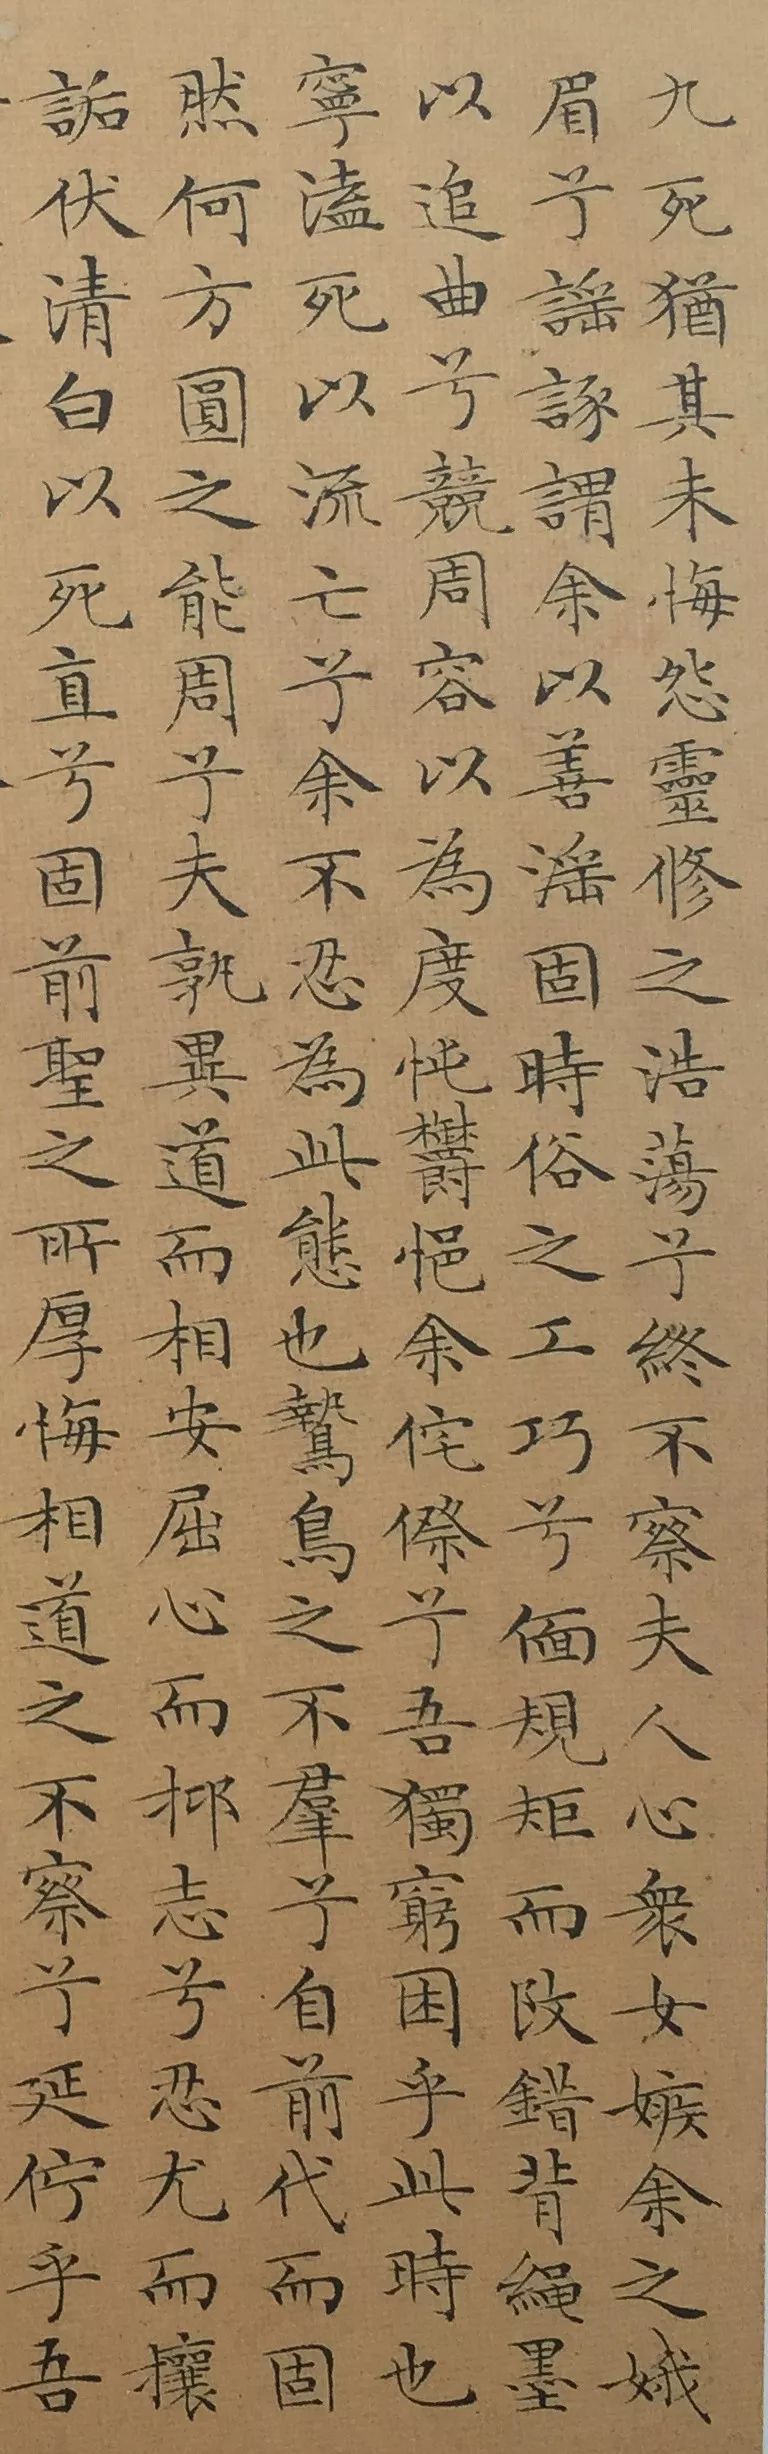 九死猶其未悔怨靈修之浩蕩兮終不察夫人心衆女嫉余之娥
眉兮謡諑謂余以善滛固時俗之工巧兮偭規矩而改錯背繩墨
以追曲兮競周容以為度忳欝悒余侘傺兮吾獨窮困乎此時也
寧溘死以流亡兮余不忍為此態也鷙鳥之不羣兮自前代而固
然何方圓之能周兮夫孰異道而相安屈心而抑志兮忍尤而攘
詬伏清白以死直兮固前聖之所厚悔相道之不察兮延佇乎吾